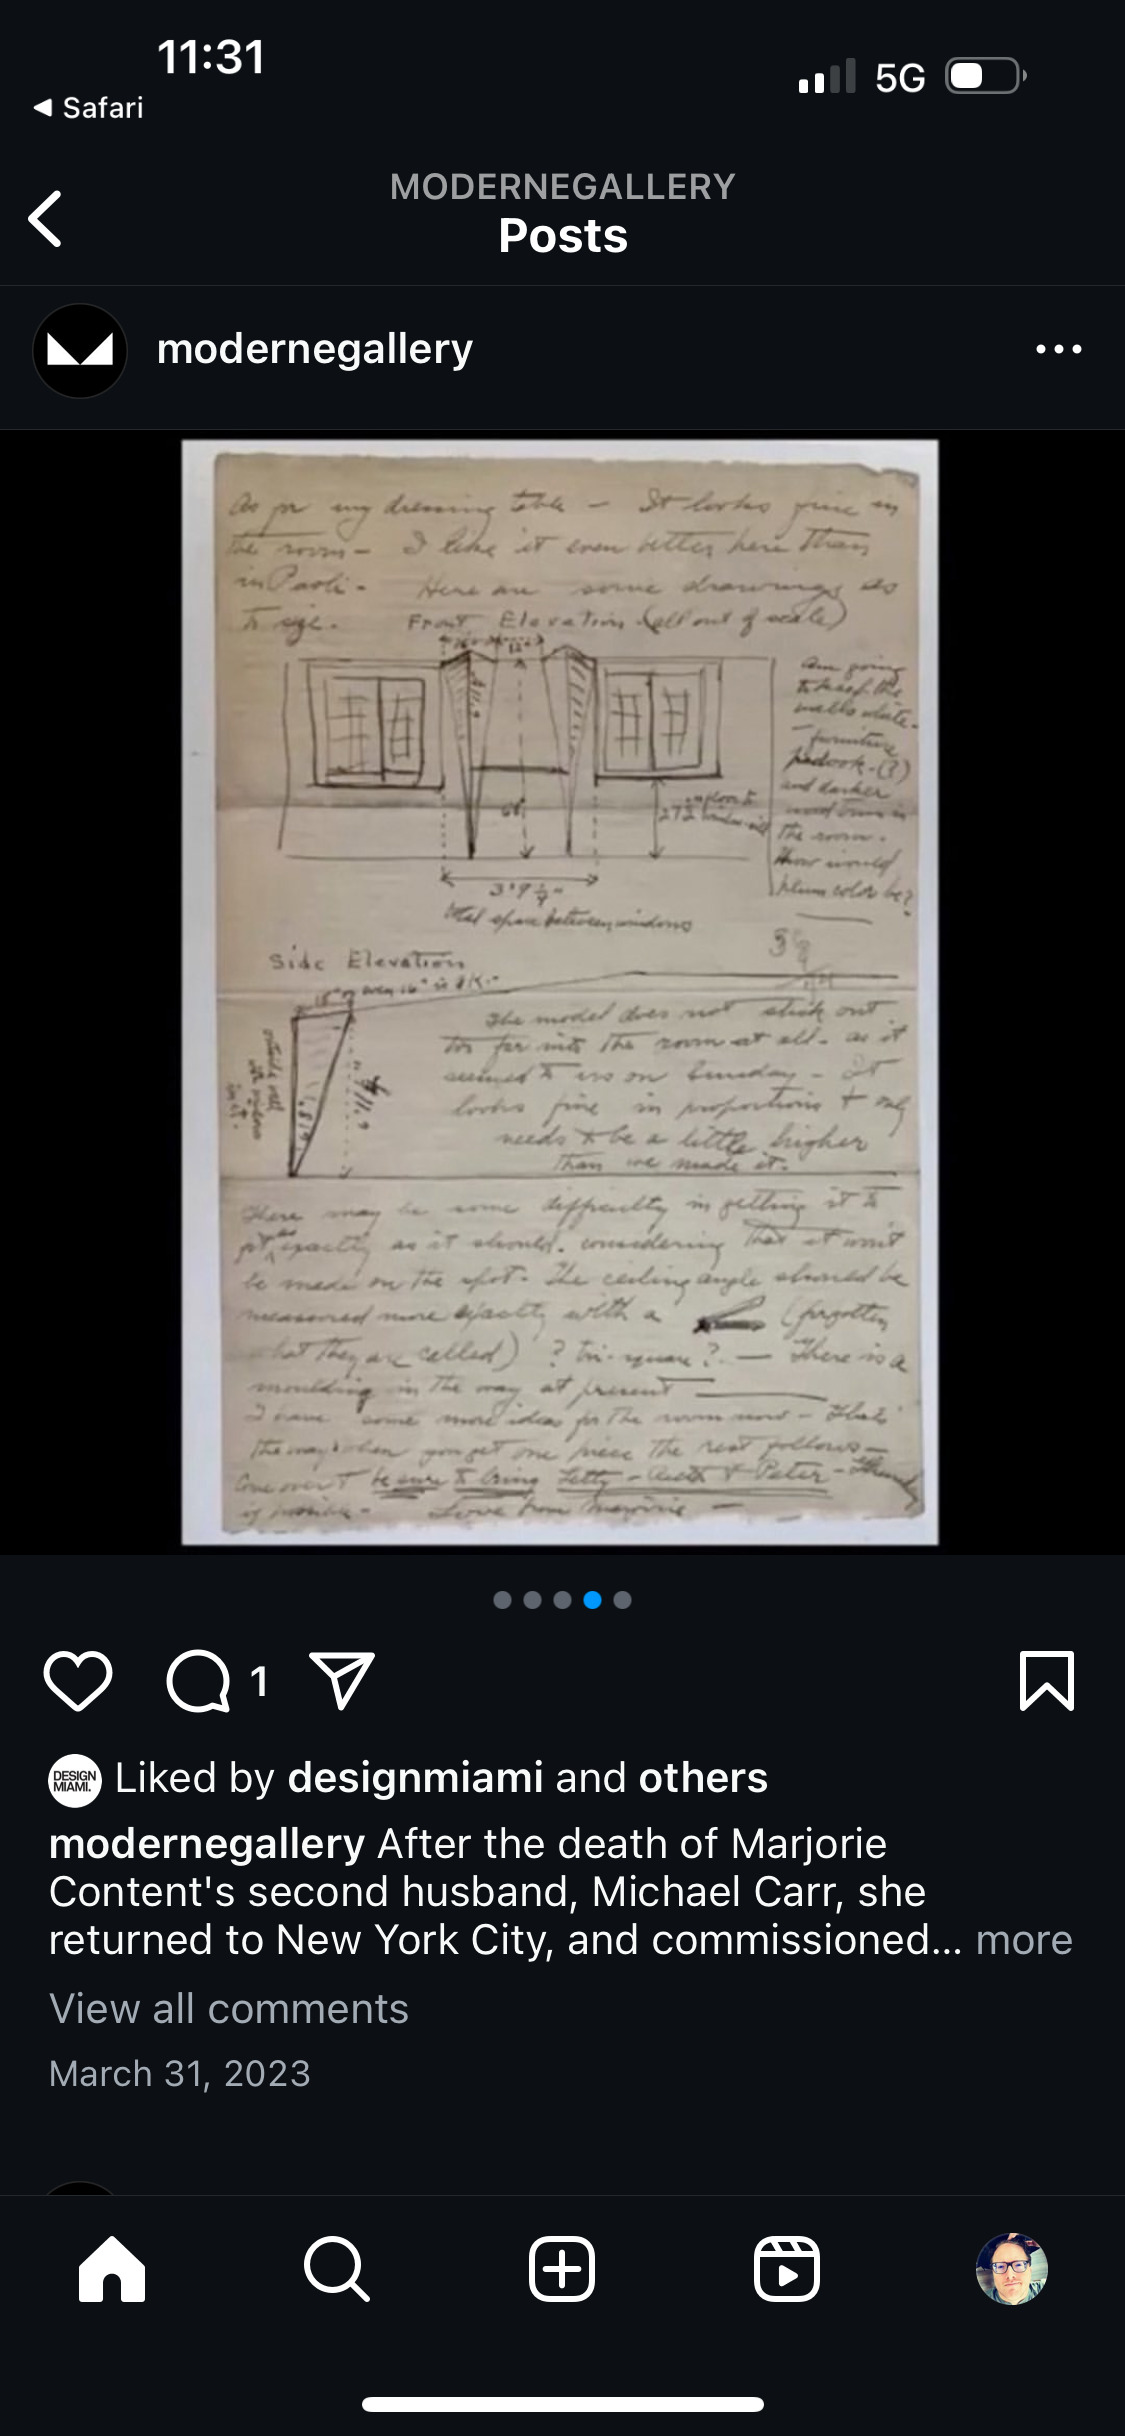 11:31
Safari
5G
MODERNEGALLERY
Posts
modernegallery
As for my dressing table – It looks fine in
the room – I like it even better here than
in Paoli. Here are some drawings as
to size. Front Elevation (all out of scale)
12"
Am going
to keep the
walls white –
furniture
padook – (?)
and darker
wood trim in
the room.
How would
plum color be?
68"
27½
3'9
total space between windows
Side Elevation
18" or even 16" is O.K. –
The model does not stick out
too far into the room at all – as it
seemed to us on Sunday – It
looks fine in proportions + only
needs to be a little higher
than we made it.
There may be some difficulty in getting it to
fit as exactly as it should, considering that it won't
be made on the spot. The ceiling angle should be
measured more exactly with a (forgotten
what they are called) ? tri-square? — There is a
moulding in the way at present
I have some more ideas for the room now – That's
the way when you get one piece the rest follows –
Come over + be sure to bring Letty – + Peter –
if possible – Love from Marjorie –
1
DESIGN
MIAMI.
Liked by designmiami and others
modernegallery After the death of Marjorie
Content's second husband, Michael Carr, she
returned to New York City, and commissioned... more
View all comments
March 31, 2023